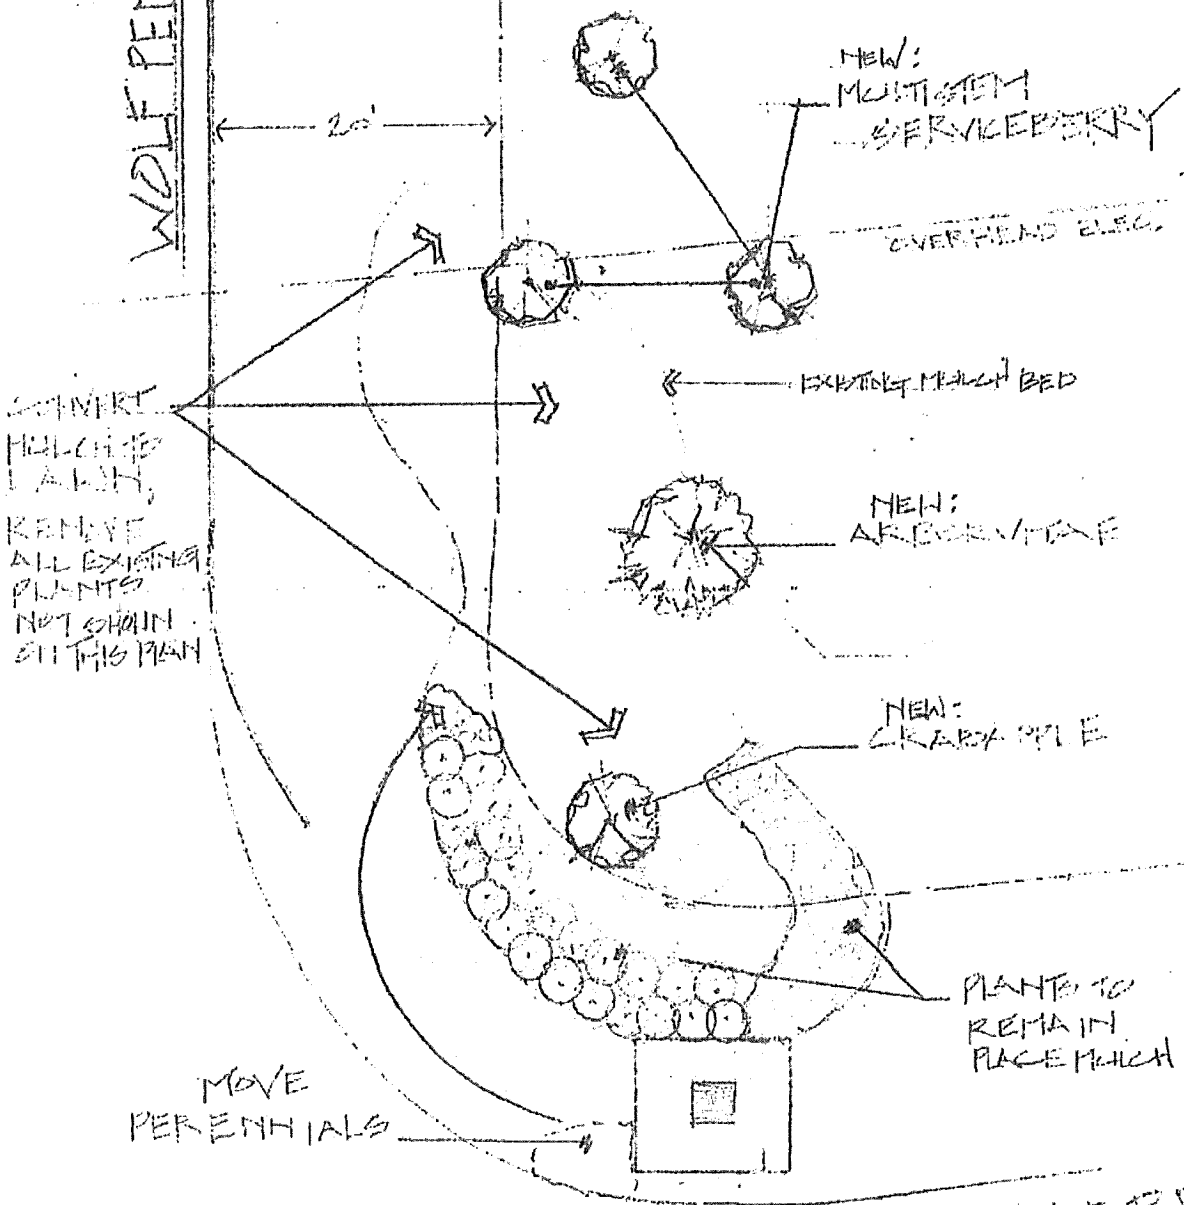 WOLF PEN
20'
NEW:
MULTISTEM
SERVICEBERRY
OVERHEAD ELEC.
EXISTING MULCH BED
CONVERT
MULCH TO
LAWN,
REMOVE
ALL EXISTING
PLANTS
NOT SHOWN
ON THIS PLAN
NEW:
ARBORVITAE
NEW:
CRABAPPLE
PLANTS TO
REMAIN
PLACE MULCH
MOVE
PERENNIALS